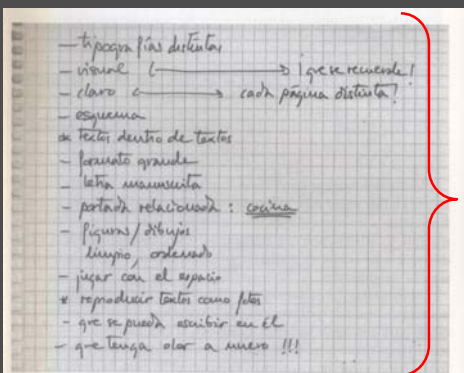 – tipografías distintas
– visual ⟵⟶ ¡que se recuerde!
– claro ⟵⟶ cada página distinta!
– esquema
* textos dentro de textos
– formato grande
– letra manuscrita
– portada relacionada : cocina
– figuras / dibujos
limpio, ordenado
– jugar con el espacio
* reproducir textos como fotos
– que se pueda escribir en él
– que tenga olor a nuevo !!!